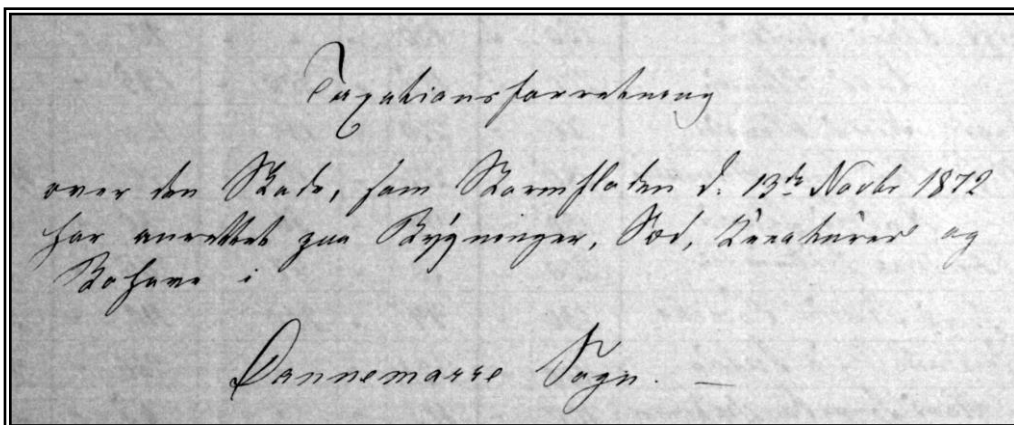 Taxationsforretning
over den Skade, som Stormfloden d. 13de Novbr 1872
har anrettet paa Bygninger, Sæd, Creaturer og
Bohave i
Dannemarre Sogn. —